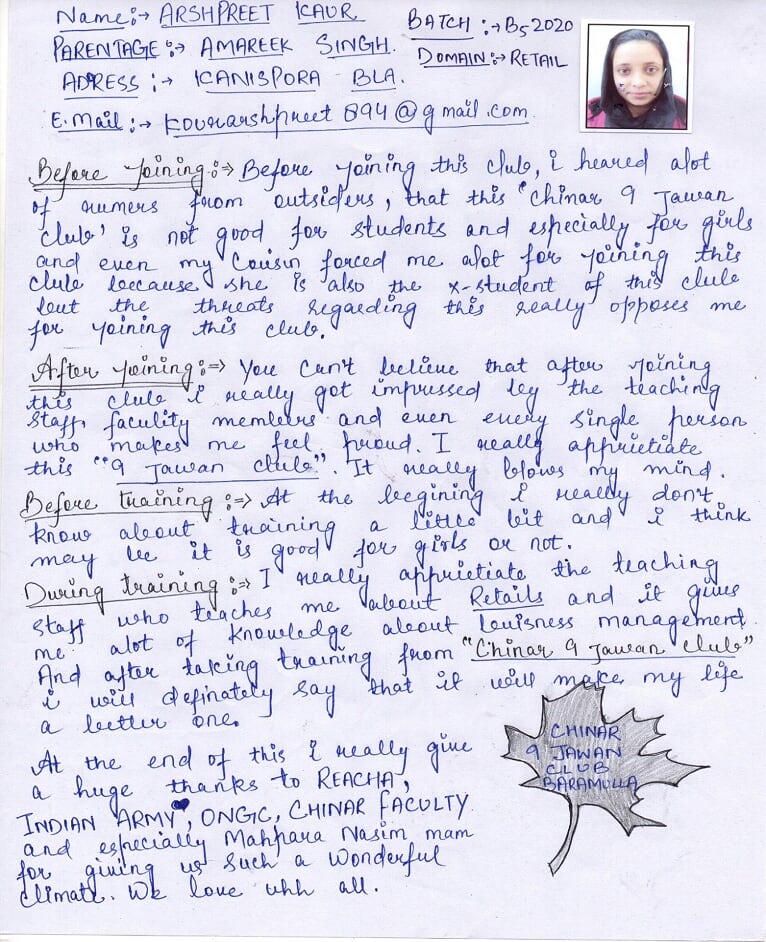 Name:→ ARSHPREET KAUR
BATCH :→B5 2020
PARENTAGE:→ AMAREEK SINGH.
DOMAIN:→RETAIL
ADRESS :→ KANISPORA BLA.
E.Mail:→ kourarshpreet 894@gmail.com
Before joining:⇒ Before joining this club, i heared alot
of rumers from outsiders, that this 'Chinar 9 Jawan
Club' is not good for students and especially for girls
and even my Cousin forced me alot for joining this
club because she is also the x-student of this club
but the threats regarding this really opposes me
for joining this club.
After joining:⇒ You can't believe that after joining
this club i really got impressed by the teaching
staff, faculity members and even every single person
who makes me feel proud. I really apprietiate
this "9 Jawan club". It really blows my mind.
Before training:⇒ At the begining i really don't
know about training a little bit and i think
may be it is good for girls or not.
During training:⇒ I really apprietiate the teaching
staff who teaches me about Retails and it gives
me alot of knowledge about buisness management.
And after taking training from "Chinar 9 Jawan Club"
i will definately say that it will make my life
a better one.
At the end of this i really give
a huge thanks to REACHA,
INDIAN ARMY, ONGC, CHINAR FACULTY
and especially Mahpara Nasim mam
for giving us such a wonderful
climate. We love uhh all.
CHINAR
9 JAWAN
CLUB
BARAMULLA